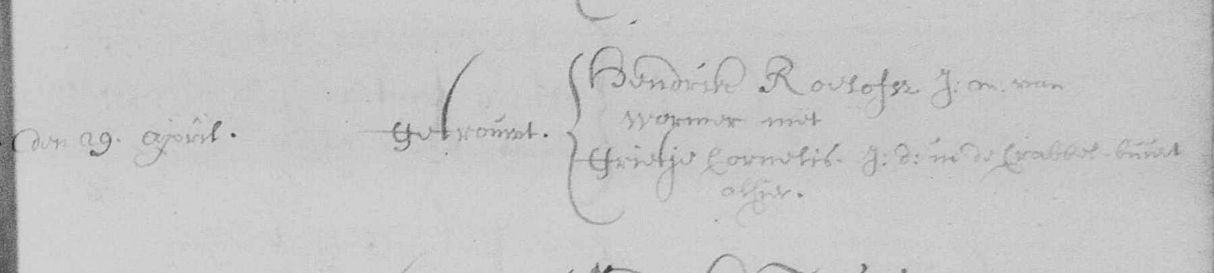 den 29. April.
Getrouwt.
Hendrik Roelofsz. J: m. van
Wormer met
Grietje Cornelis. J: d: in de Crabbel-buurt
alhier.